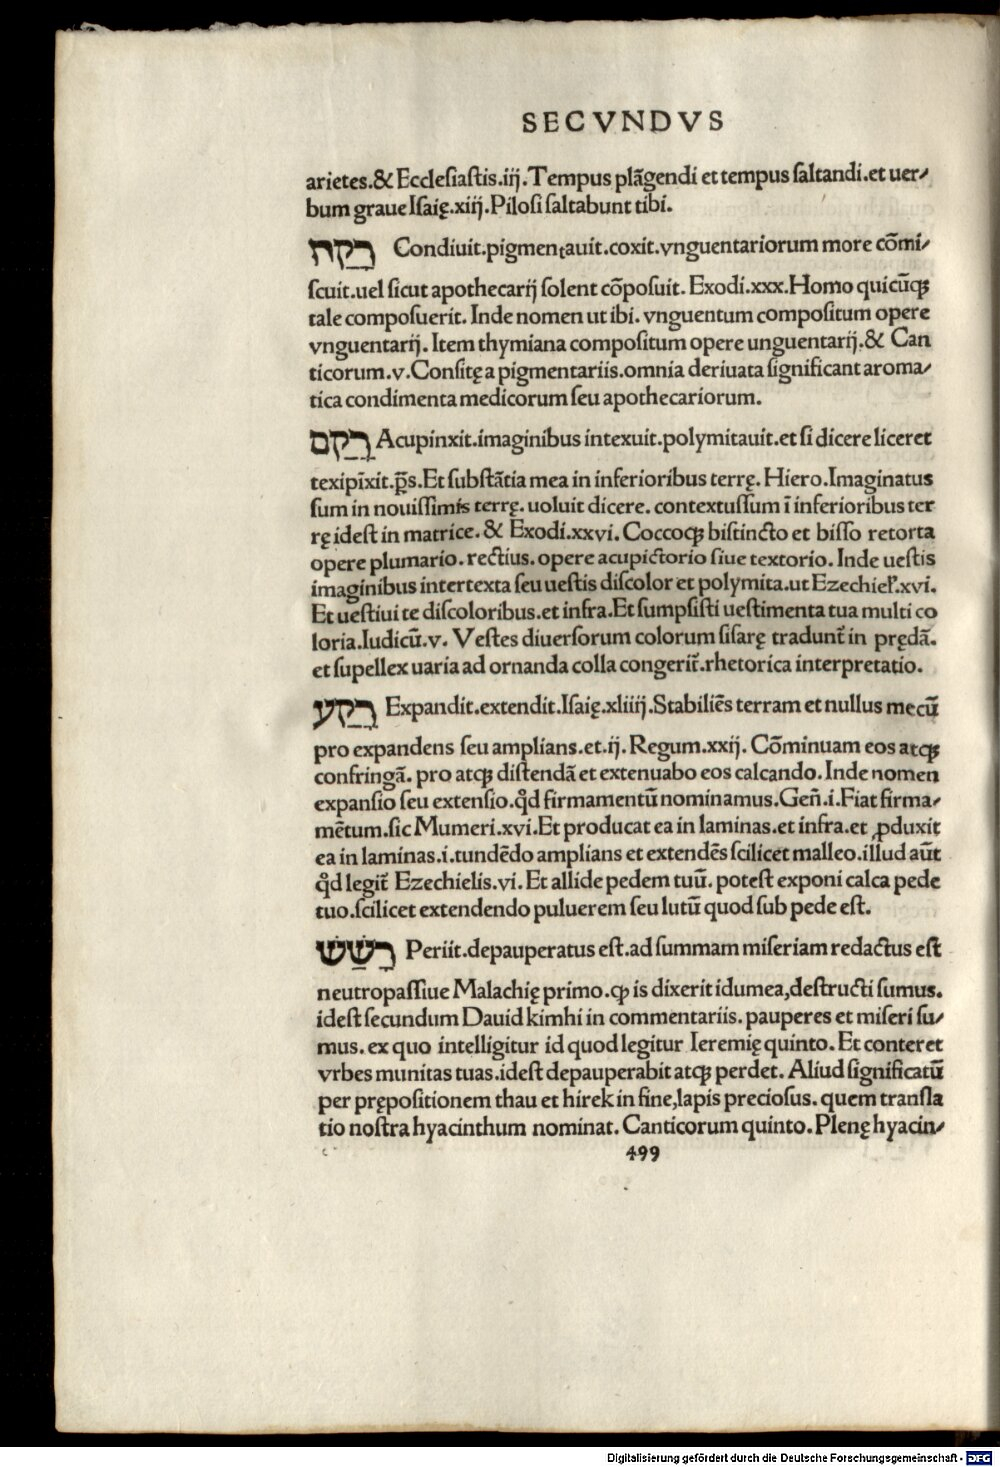 SECVNDVS
arietes.& Ecclesiastis.iij.Tempus plãgendi et tempus saltandi.et uer/
bum graue Isaię.xiij.Pilosi saltabunt tibi.
רָקַח Condiuit.pigmentauit.coxit.vnguentariorum more cõmi/
scuit.uel sicut apothecarij solent cõposuit. Exodi.xxx.Homo quicũqꝫ
tale composuerit. Inde nomen ut ibi. vnguentum compositum opere
vnguentarij. Item thymiana compositum opere unguentarij.& Can
ticorum.v.Consitę a pigmentariis.omnia deriuata significant aroma/
tica condimenta medicorum seu apothecariorum.
רָקַם Acupinxit.imaginibus intexuit.polymitauit.et si dicere liceret
texipĩxit.p̃s.Et substãtia mea in inferioribus terrę. Hiero.Imaginatus
sum in nouissimis terrę. uoluit dicere. contextussum ĩ inferioribus ter
rę idest in matrice. & Exodi.xxvi. Coccoqꝫ bistincto et bisso retorta
opere plumario. rectius. opere acupictorio siue textorio. Inde uestis
imaginibus intertexta seu uestis discolor et polymita.ut Ezechiel̓.xvi.
Et uestiui te discoloribus.et infra.Et sumpsisti uestimenta tua multi co
loria.Iudicũ.v. Vestes diuersorum colorum sisarę tradunt̃ in prędã.
et supellex uaria ad ornanda colla congerit̃.rhetorica interpretatio.
רָקַע Expandit.extendit.Isaię.xliiij.Stabiliẽs terram et nullus mecũ
pro expandens seu amplians.et.ij. Regum.xxij. Cõminuam eos atqꝫ
confringã. pro atqꝫ distendã et extenuabo eos calcando. Inde nomen
expansio seu extensio.qd̓ firmamentũ nominamus.Geñ.i.Fiat firma/
mẽtum.sic Mumeri.xvi.Et producat ea in laminas.et infra.et ꝓduxit
ea in laminas.i.tundẽdo amplians et extendẽs scilicet malleo.illud aũt
qd̓ legit̃ Ezechielis.vi. Et allide pedem tuũ. potest exponi calca pede
tuo.scilicet extendendo puluerem seu lutũ quod sub pede est.
רָשַׁשׁ Periit.depauperatus est.ad summam miseriam redactus est
neutropassiue Malachię primo.qꝫ is dixerit idumea,destructi sumus.
idest secundum Dauid kimhi in commentariis. pauperes et miseri su/
mus. ex quo intelligitur id quod legitur Ieremię quinto. Et conteret
vrbes munitas tuas.idest depauperabit atqꝫ perdet. Aliud significatũ
per prępositionem thau et hirek in fine,lapis preciosus. quem transla
tio nostra hyacinthum nominat. Canticorum quinto. Plenę hyacin/
499
Digitalisierung gefördert durch die Deutsche Forschungsgemeinschaft - DFG